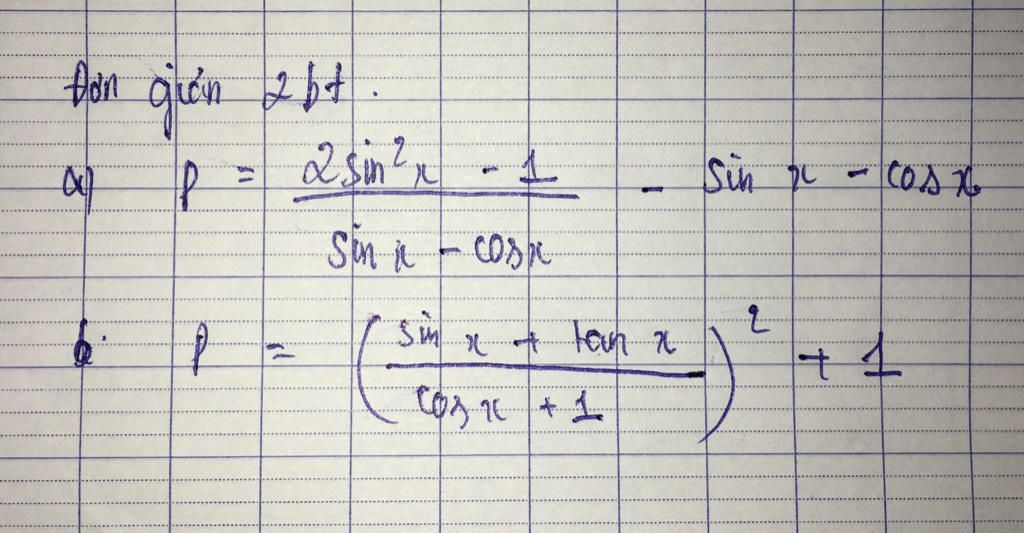 Đơn giản 2 bt.
a) P = \frac{2 sin^2 x - 1}{sin x - cos x} - sin x - cos x
b. P = \left( \frac{sin x + tan x}{cos x + 1} \right)^2 + 1